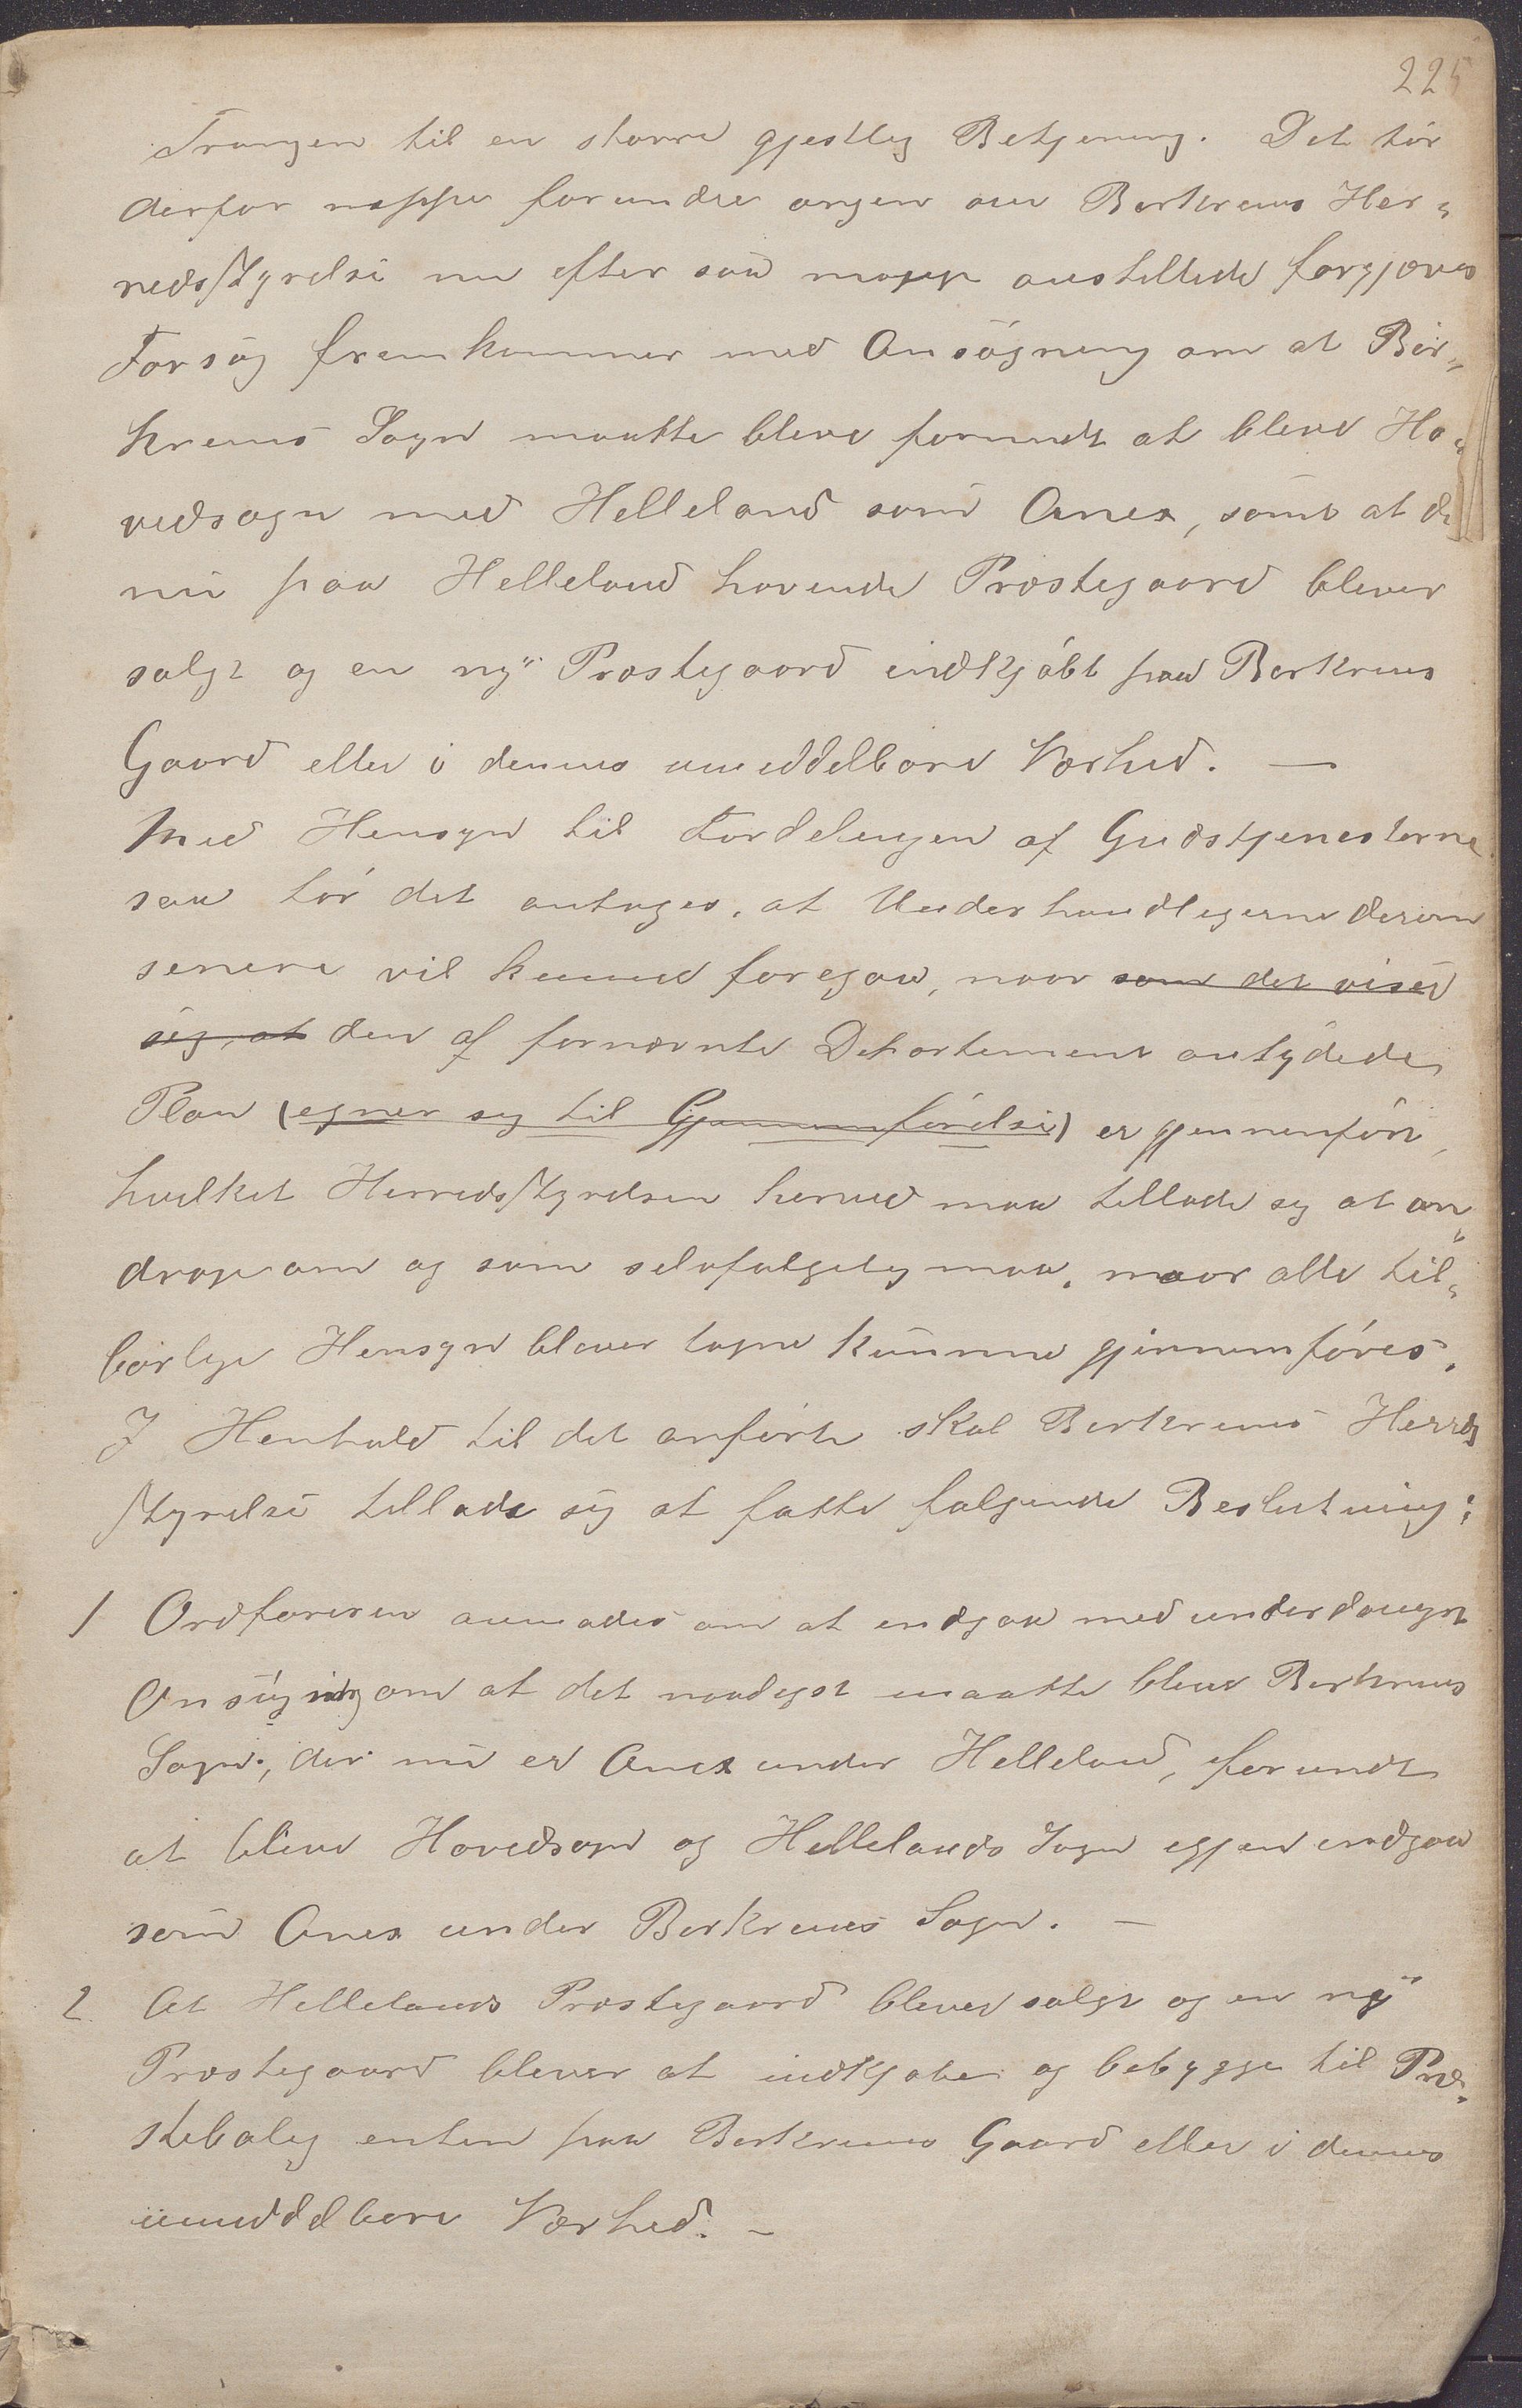 225
Trangen til en større gjestlig Betjening. Det tør
derfor neppe forundre nogen om Berkrems Her„
redsstyrelse nu efter saa mange anstillede forgjæves
Forsøg fremkommer med Ansøgning om at Ber„
krems Sogn maatte blive forundt at blive Ho„
vedsogn med Helleland som Anex, samt at de
nu paa Helleland havende Præstegaard bliver
solgt og en ny Præstegaard indkjøbt paa Berkrems
Gaard eller i dennes umiddelbare Nærhed. —
Med Hensyn til Fordelingen af Gudstjenesterne
saa tør det antages, at Underhandlingerne derom
senere vil kunne foregaa, naar som det viser
sig, at den af fornævnte Departement antydede
Plan (egner sig til Gjennemførelse) er gjennemført,
hvilket Herredsstyrelsen herved maa tillade sig at an„
drage om og som selvfølgelig maa, naar alle til„
børlige Hensyn bliver tagne kunne gjennemføres.
I Henhold til det anførte skal Berkrems Herreds
styrelse tillade sig at fatte følgende Beslutning:
1 Ordføreren anmodes om at indgaa med underdanigst
Ansøgning om at det naadigst maatte blive Berkrems
Sogn, der nu er Anex under Helleland, forundt
at blive Hovedsogn og Hellelands Sogn igjen indgaa
som Anex under Berkrems Sogn. —
2. At Hellelands Præstegaard bliver solgt og en ny
Præstegaard bliver at indkjøbe og bebygge til Præ„
stebolig enten paa Berkrems Gaard eller i dennes
umiddelbare Nærhed. –